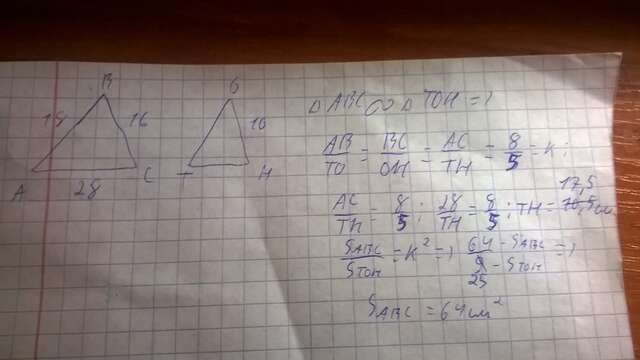 B
18
16
A
28
C
O
10
T
H
△ABC ∞ △TOH =>
AB/TO = BC/OH = AC/TH = 8/5 = K;
AC/TH = 8/5; 28/TH = 8/5; TH = 17,5
S ABC/S TOH = K² => 64 - S ABC/25 - S TOH =>
S ABC = 64 см²